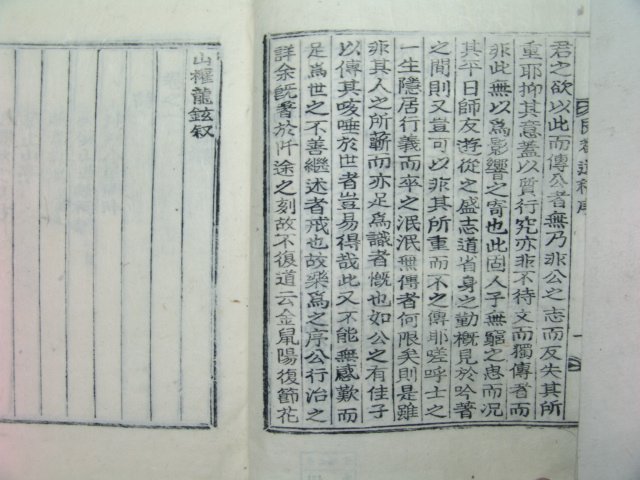 君之欲以此而傳公者無乃非公之志而反失其所
重耶抑其意蓋以質行究亦非不待文而獨傳者而
非此無以爲影響之寄也此固人子無窮之思而况
其平日師友遊從之盛志道省身之勤槪見於吟著
之間則又豈可以非其所重而不之傳耶嗟呼士之
一生隱居行義而卒之泯泯無傳者何限矣則是雖
非其人之所蘄而亦足爲識者慨也如公之有佳子
以傳其咳唾於世者豈易得哉此又不能無感歎而
足爲世之不善繼述者戒也故樂爲之序公行治之
詳余旣畧於阡途之刻故不復道云金鼠陽復節花
山權龍鉉叙